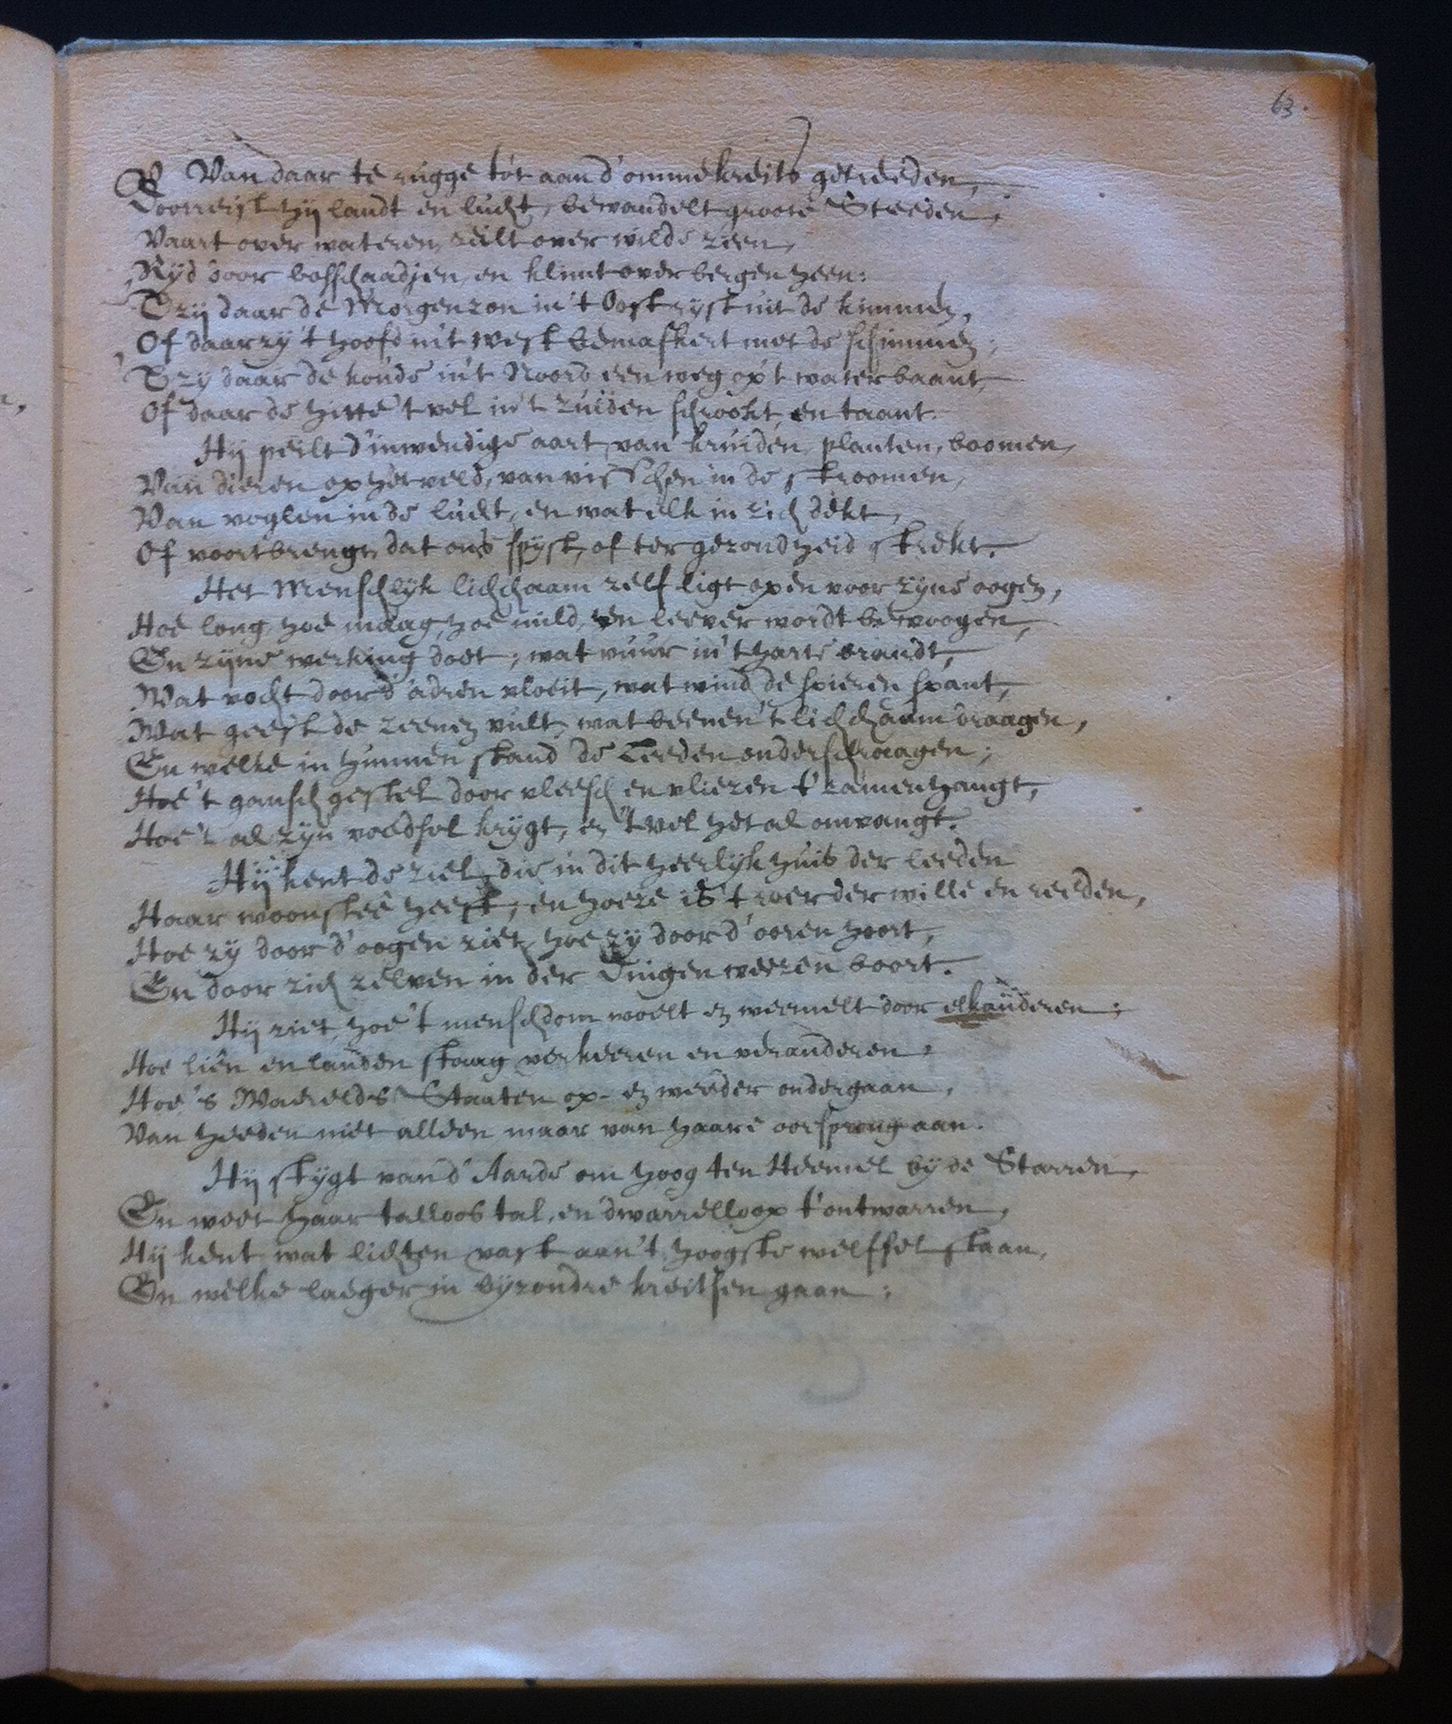 63.
Van daar te rugge tót aan d'ommekreits getreeden,
Doorreist hÿ landt en lucht, bewandelt groote Steeden,
Vaart over wateren, zeilt over wilde zeen,
Rÿd door bosschaadjen, en klimt over bergen heen:
't Zy daar de Morgenzon in 't Oost ryst uit de kimmen,
Of daar zy 't hoofd in 't West bemaskert met de schimmen;
't Zy daar de koude in 't Noord een weg op 't water baant,
Of daar de hitte 't vel in 't zuiden schrookt, en taant.
Hÿ peilt d'inwendige aart van kruiden, planten, boomen,
Van dieren op het veld, van visschen in de stroomen,
Van voglen in de lucht, en wat elk in zich dekt,
Of voortbrengt, dat ons spÿst, of ter gezondheid strekt.
Het Menschlyk lichchaam zelf ligt open voor zÿne oogen,
Hoe long, hoe maag, hoe mild, en leever wordt bewoogen,
En zÿne werking doet; wat vuur in 't harte brandt,
Wat vocht door d'adren vloeit, wat wind de spieren spant,
Wat geest de zeenen vult, wat beenen 't lichchaam draagen,
En welke in hunnen stand de Leeden onderschraagen;
Hoe 't gansch gestel door vleesch en vliezen t'zamenhangt,
Hoe 't al zÿn voedsel krÿgt, en 't vel het al omvangt.
Hÿ kent de ziel, die in dit heerlÿk huis der leeden
Haar woonsteê heeft, en hoe ze is 't roer der wille en reeden,
Hoe zy door d'oogen ziet, hoe zy door d'ooren hoort,
En door zich zelven in der Dingen weezen boort.
Hÿ ziet, hoe 't menschdom woelt en weemelt door elkanderen;
Hoe liên en landen staag verkeeren en veranderen,
Hoe 's Waerelds Staaten op- en weeder ondergaan,
Van heeden niet alleen maar van haare oorsprong aan.
Hÿ stÿgt van d'Aarde om hoog ten Heemel by de Starren,
En weet haar talloos tal, en dwarrelloop t'ontwarren,
Hÿ kent wat lichten vast aan 't hoogste welffel staan,
En welke laeger in bÿzondre kreitsen gaan;